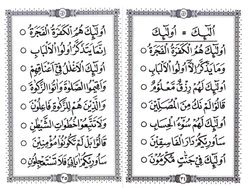 اُلٰٓئِكَ ۞ اُولٰٓئِكَ
اُولٰٓئِكَ هُمُ الْكَفَرَةُ الْفَجَرَةُ ۞
وَمَا يَذَّكَّرُ اِلَّٓا اُولُوا الْاَلْبَابِ ۞
اُولٰٓئِكَ لَهُمْ رِزْقٌ مَعْلُومٌ ۞
قَالُوا لَمْ نَكُ مِنَ الْمُصَلِّينَ ۞
اُولٰٓئِكَ لَهُمْ سُٓوءُ الْحِسَابِ ۞
سَاُرِيكُمْ دَارَ الْفَاسِقِينَ ۞
اُولٰٓئِكَ فِي جَنَّاتٍ مُكْرَمُونَ ۞
اُولٰٓئِكَ هُمُ الْكَفَرَةُ الْفَجَرَةُ ۞
اِنَّمَا يَتَذَكَّرُ اُولُوا الْاَلْبَابِ ۞
اُولٰٓئِكَ الْاَغْلَالُ فِٓي اَعْنَاقِهِمْ ۞
وَاَقِيمُوا الصَّلٰوةَ وَاٰتُوا الزَّكٰوةَ ۞
وَالَّذِينَ هُمْ لِلزَّكٰوةِ فَاعِلُونَ ۞
وَلَا تَتَّبِعُوا خُطُوَاتِ الشَّيْطَانِ ۞
قَالُوا بَلْ لَمْ تَكُونُوا مُؤْمِنِينَ ۞
سَاُرِيكُمْ اٰيَاتِي فَلَا تَسْتَعْجِلُونِ ۞